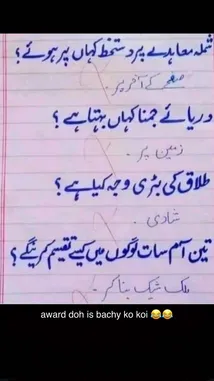 شملہ معاہدے پر دستخط کہاں پر ہوئے؟
صفحے کے آخر پر۔
دریائے جمنا کہاں بہتا ہے؟
زمین پر۔
طلاق کی بڑی وجہ کیا ہے؟
شادی۔
تین آم سات لوگوں میں کیسے تقسیم کرینگے؟
ملک شیک بنا کر۔
award doh is bachy ko koi 😂😂